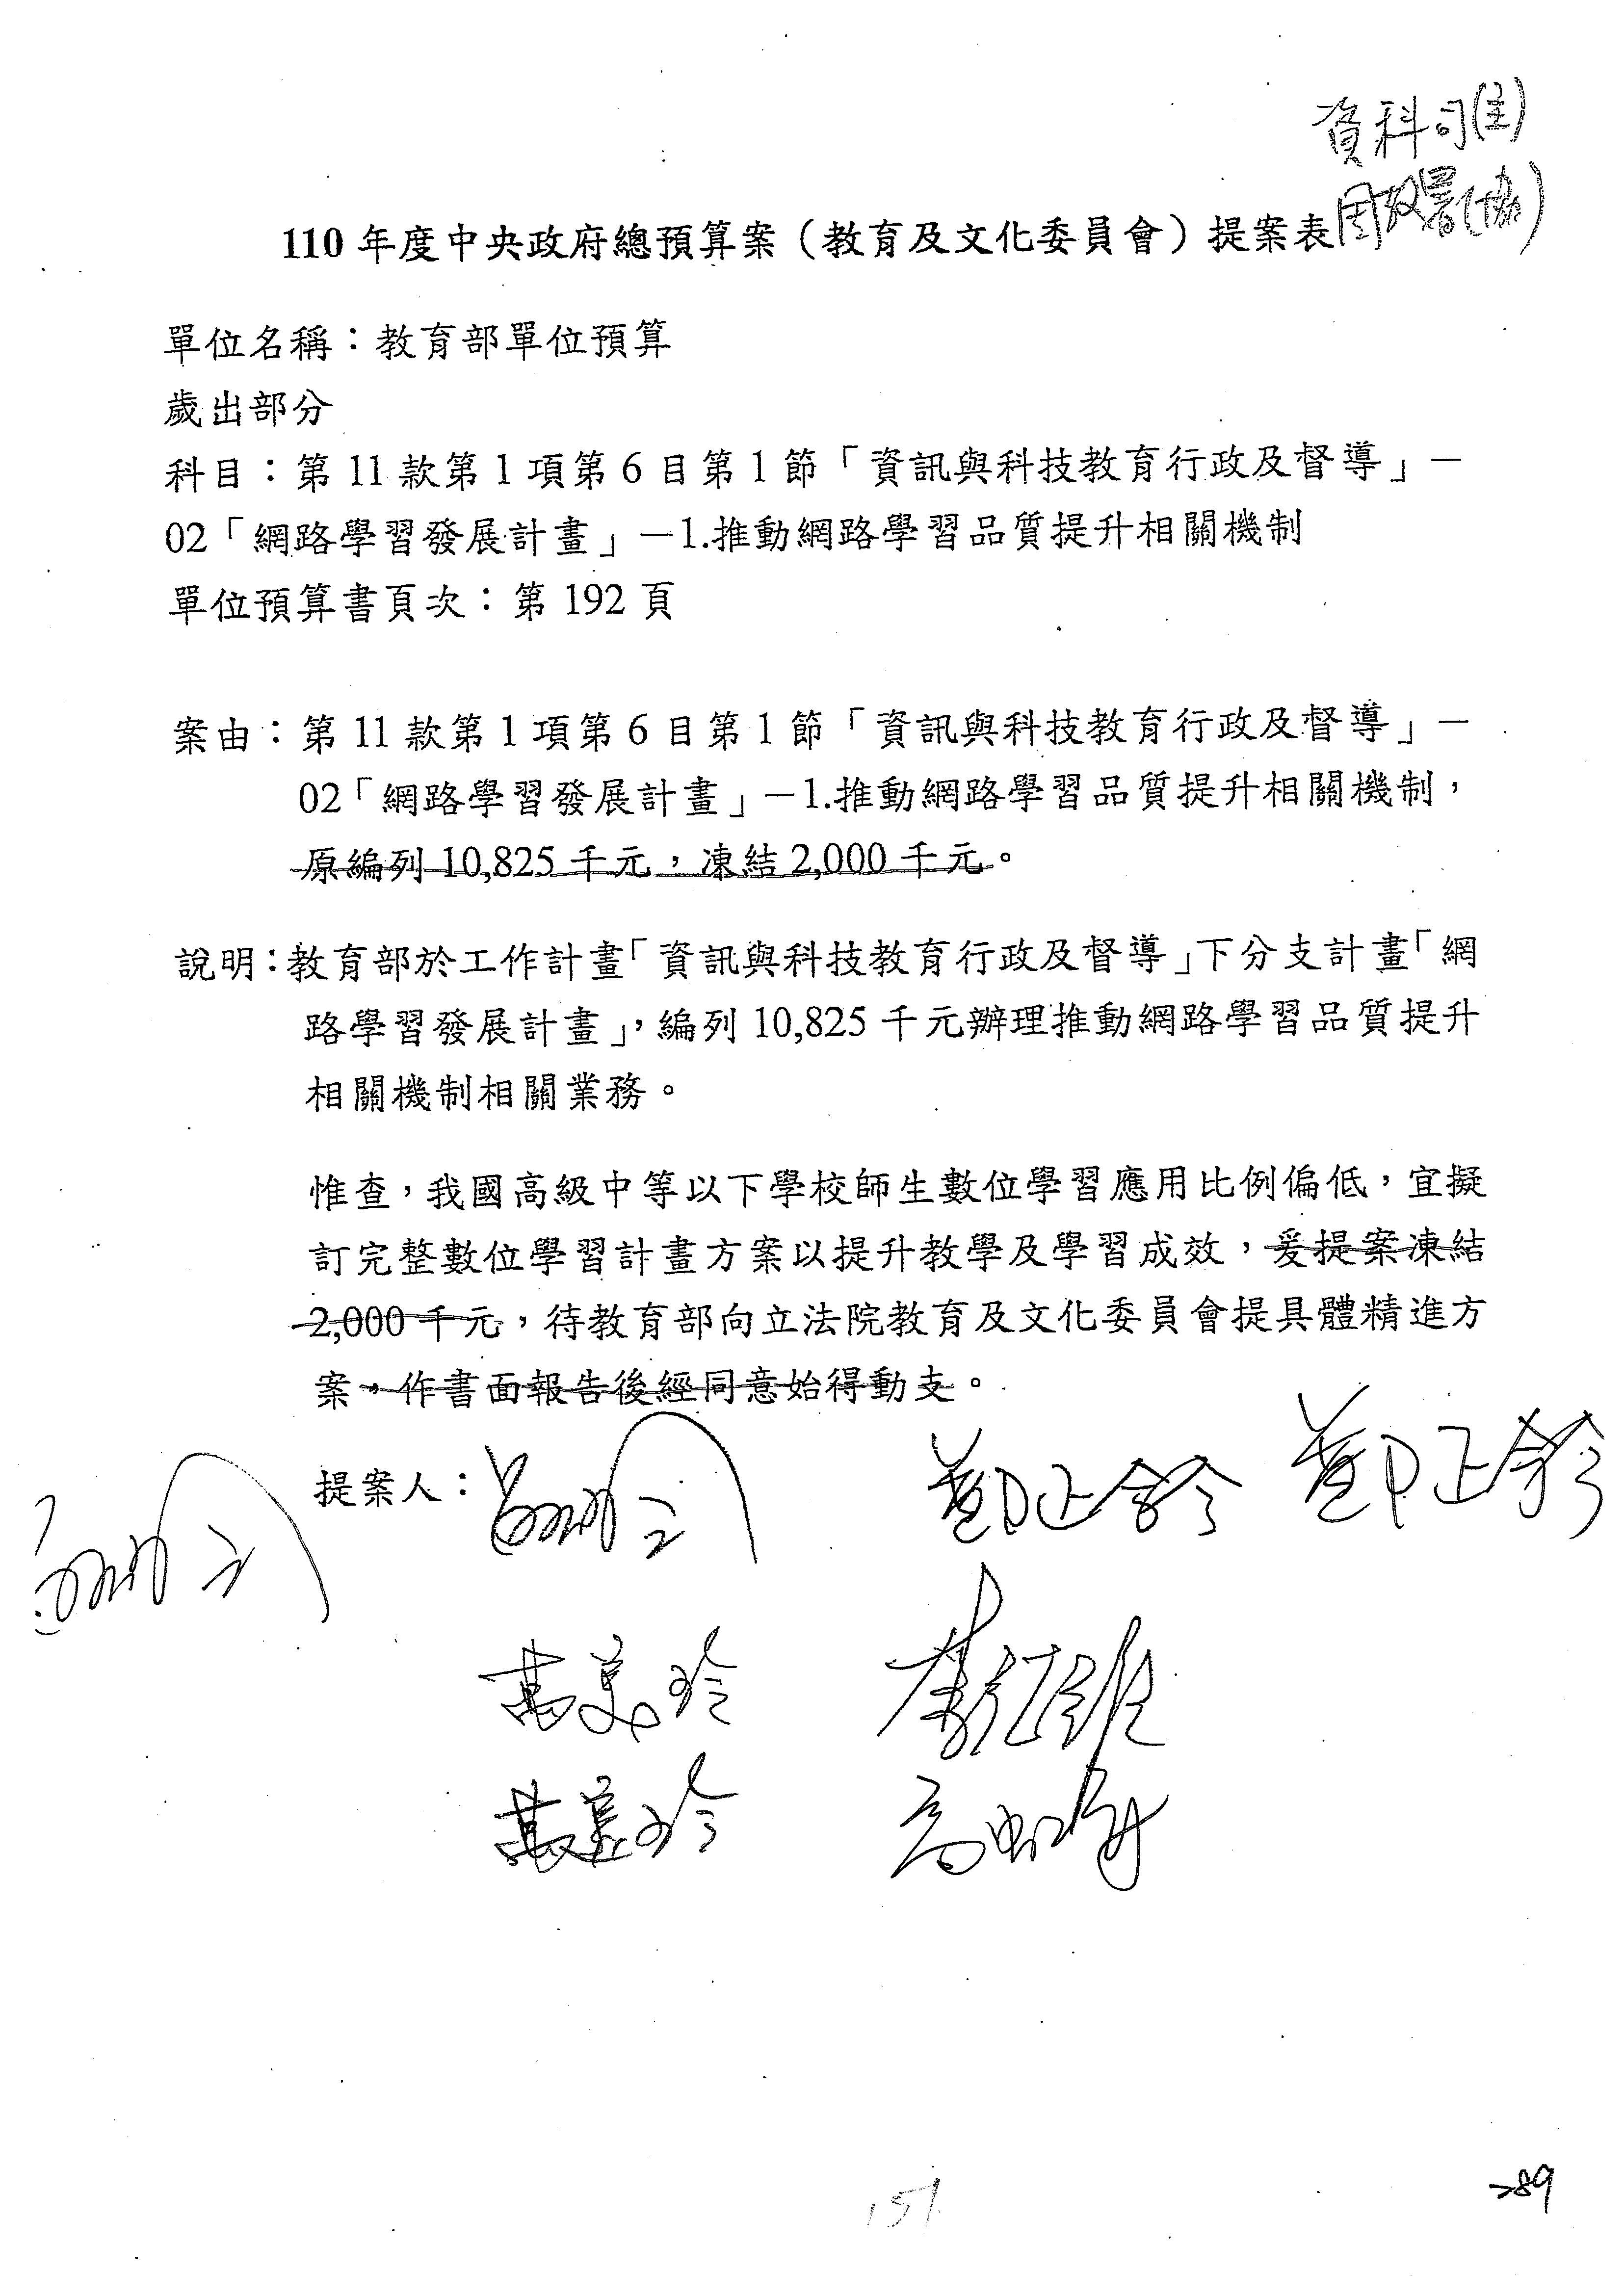 資科司(主)
國教署(協)
110 年度中央政府總預算案（教育及文化委員會）提案表
單位名稱：教育部單位預算
歲出部分
科目：第 11 款第 1 項第 6 目第 1 節「資訊與科技教育行政及督導」－
02「網路學習發展計畫」－1.推動網路學習品質提升相關機制
單位預算書頁次：第 192 頁
案由：第 11 款第 1 項第 6 目第 1 節「資訊與科技教育行政及督導」－
02「網路學習發展計畫」－1.推動網路學習品質提升相關機制，
原編列 10,825 千元，凍結 2,000 千元。
說明：教育部於工作計畫「資訊與科技教育行政及督導」下分支計畫「網
路學習發展計畫」，編列 10,825 千元辦理推動網路學習品質提升
相關機制相關業務。
惟查，我國高級中等以下學校師生數位學習應用比例偏低，宜擬
訂完整數位學習計畫方案以提升教學及學習成效，爰提案凍結
2,000 千元，待教育部向立法院教育及文化委員會提具體精進方
案，作書面報告後經同意始得動支。
提案人：
鄭正鈐 鄭正鈐
萬美玲
萬美玲 高虹安
151
289